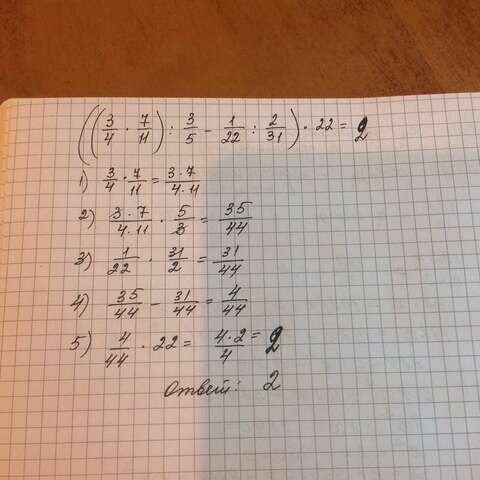 ((3/4 · 7/11) : 3/5 - 1/22 : 2/31) · 22 = 2
1) 3/4 · 7/11 = 3·7/4·11
2) 3·7/4·11 · 5/3 = 35/44
3) 1/22 · 31/2 = 31/44
4) 35/44 - 31/44 = 4/44
5) 4/44 · 22 = 4·2/4 = 2
Ответ: 2